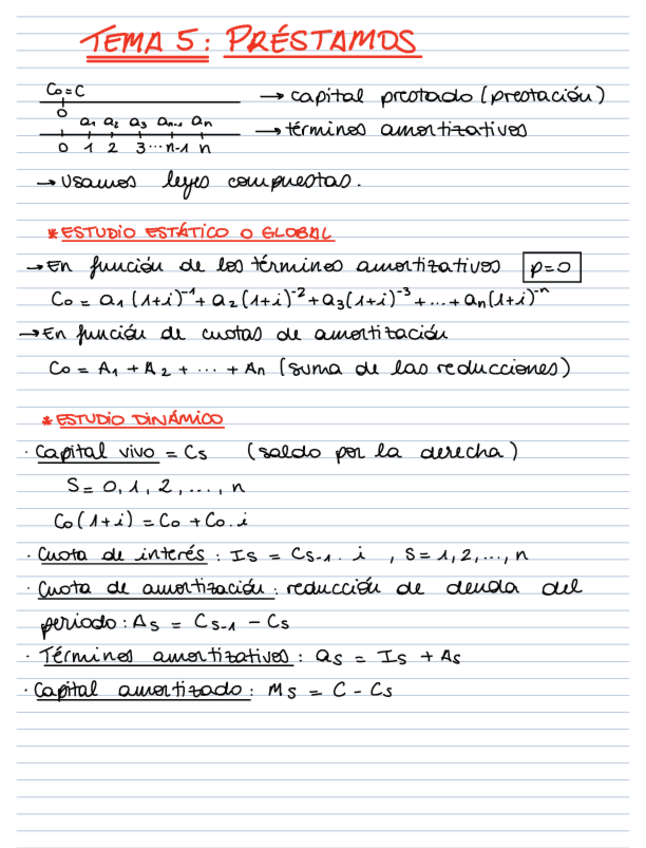 TEMA 5: PRÉSTAMOS
C₀=C → capital prestado (prestación)
0
a₁ a₂ a₃ aₙ₋₁ aₙ → términos amortizativos
0 1 2 3 ... n-1 n
→ Usamos leyes compuestas.
* ESTUDIO ESTÁTICO O GLOBAL
→ En función de los términos amortizativos p=0
C₀ = a₁ (1+i)⁻¹ + a₂ (1+i)⁻² + a₃ (1+i)⁻³ + ... + aₙ (1+i)⁻ⁿ
→ En función de cuotas de amortización
C₀ = A₁ + A₂ + ... + Aₙ (suma de las reducciones)
* ESTUDIO DINÁMICO
· Capital vivo = Cs (saldo por la derecha)
S = 0, 1, 2, ..., n
C₀ (1+i) = C₀ + C₀ . i
· Cuota de interés : Is = Cs-1 . i , S = 1, 2, ..., n
· Cuota de amortización : reducción de deuda del
periodo : As = Cs-1 - Cs
· Términos amortizativos : as = Is + As
· Capital amortizado : Ms = C - Cs